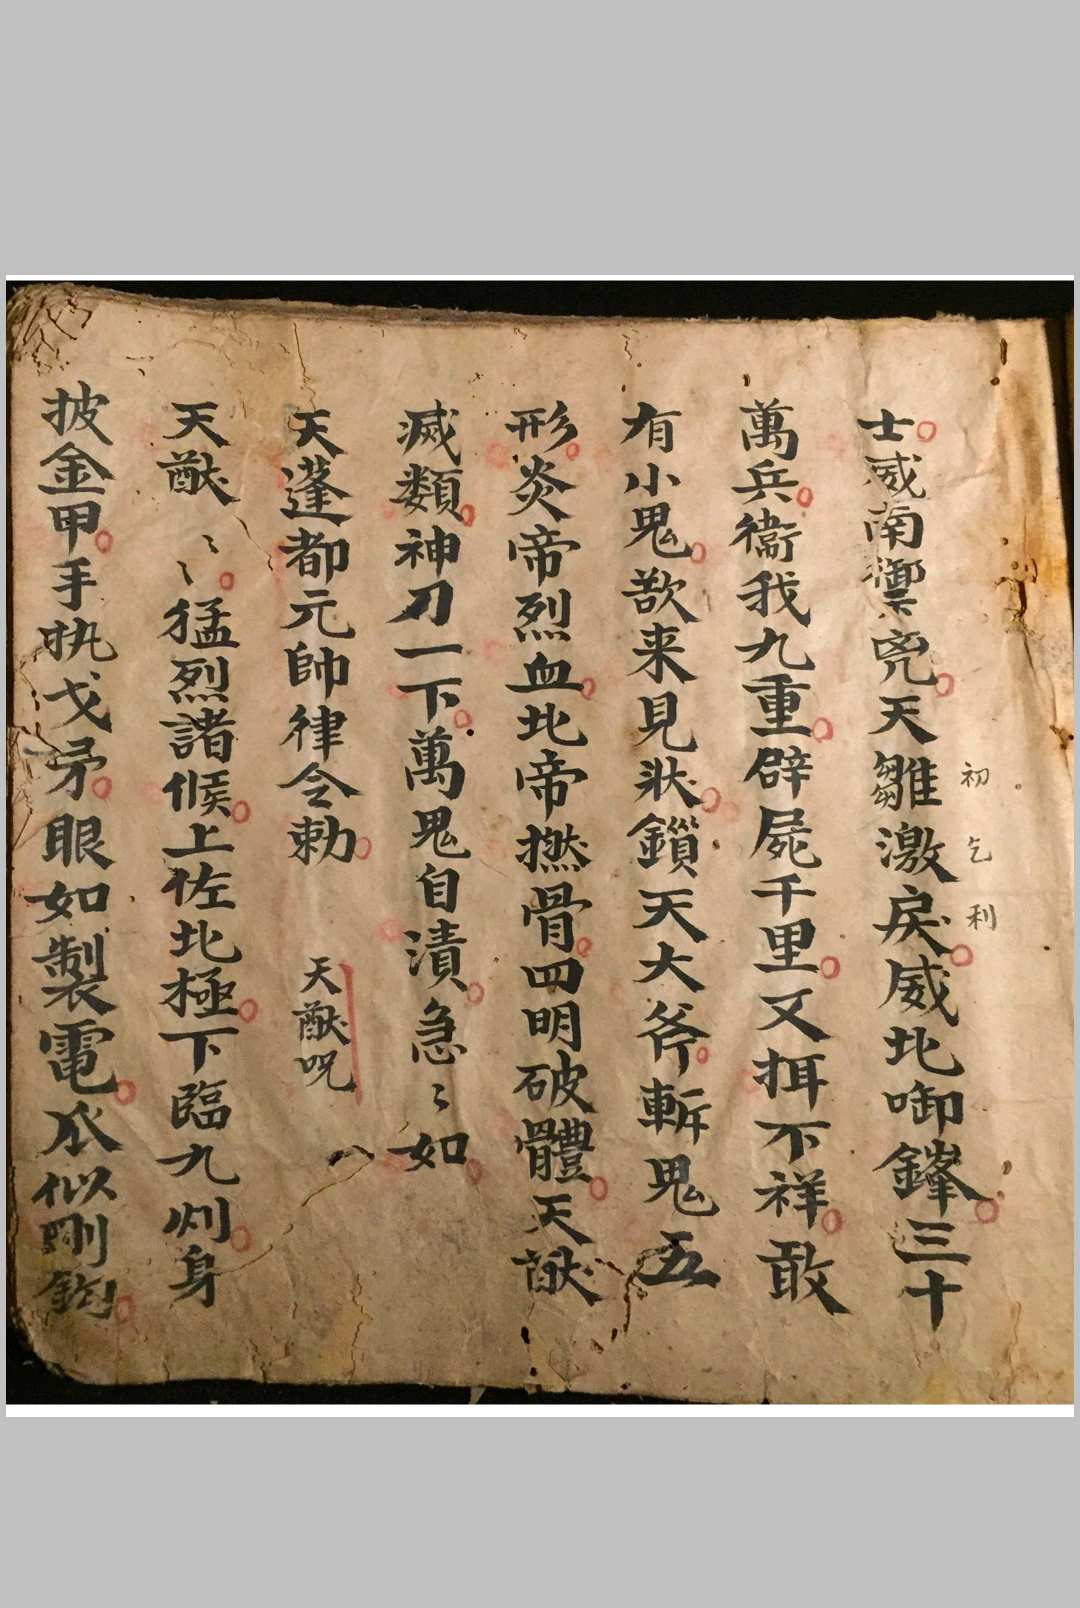 士威南禦兇天雛激戾威北啣鋒三十
初乞利
萬兵衞我九重辟屍千里又挕不祥敢
有小鬼歆来見狀鎻天大斧斬鬼五
形炎帝烈血北帝撚骨四明破體天猷
滅類神刀一下萬鬼自潰急〻如
天蓬都元帥律令勅　天猷呪
天猷〻〻猛烈諸候上佐北極下臨九刎身
披金甲手执戈矛眼如製電爪似剛鈎